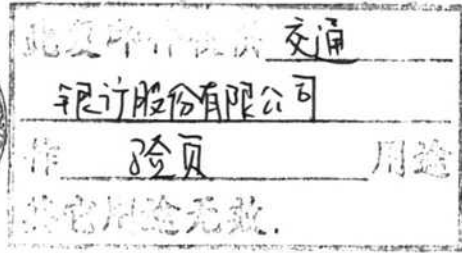 此复印件仅供交通
银行股份有限公司
作 验页 用途
其它用途无效.